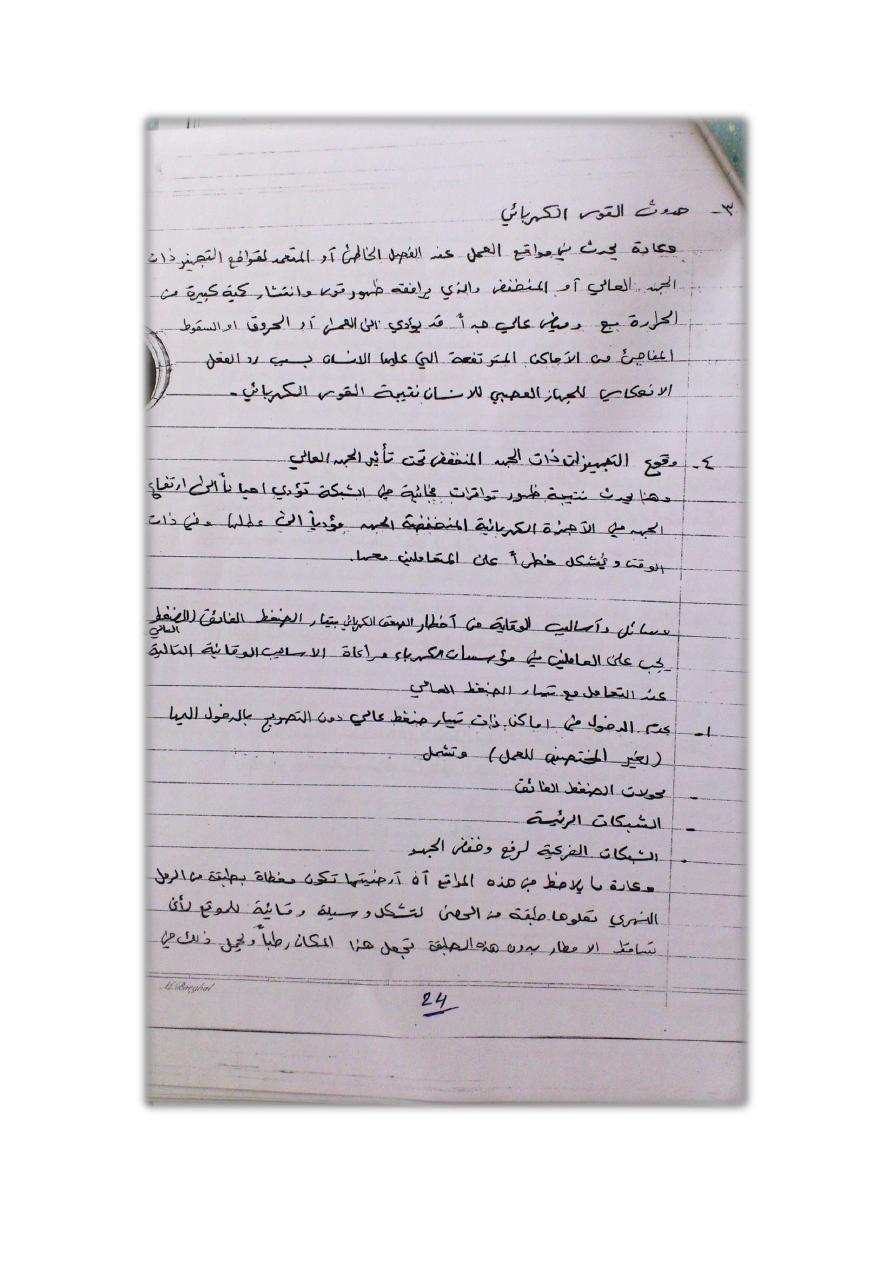 ٣- حدوث القوس الكهربائي
وعادة يحدث في مواقع العمل عند الفصل الخاطئ أو المتعمد لقواطع التجهيز ذات
الجهد العالي أو المنخفض والذي يرافقه ظهور قوس وانتشار كمية كبيرة من
الحرارة مع وميض عالي جداً قد يؤدي الى العمى أو الحروق او السقوط
المفاجئ من الأماكن المرتفعة التي عليها الانسان بسبب رد الفعل
الانعكاسي للجهاز العصبي للانسان نتيجة القوس الكهربائي .
٤- وقوع التجهيزات ذات الجهد المنخفض تحت تأثير الجهد العالي
وهذا يحدث نتيجة ظهور توافقات في الشبكة تؤدي احياناً الى ارتفاع
الجهد في الأجهزة الكهربائية المنخفضة الجهد مؤدياً الى عطلها وفي ذات
الوقت و يُشكل خطراً على المتعاملين معها.
وسائل وأساليب الوقاية من أخطار الصعق الكهربائي بتيار الضغط الفائق (الضغط العالي
يجب على العاملين في مؤسسات الكهرباء مراعاة الاساليب الوقائية التالية
عند التعامل مع تيار الضغط العالي
١- عدم الدخول في اماكن ذات تيار ضغط عالي دون التصريح بالدخول اليها
(لغير المختصين للعمل) وتشمل
- محولات الضغط الفائق
- الشبكات الرئيسة
- الشبكات الفرعية لرفع وخفض الجهد
وعادة ما يلاحظ من هذه المواقع أن أرضيتها تكون مغطاة بطبقة من الرمل
النهري تعلوها طبقة من الحصى لتشكل وسيلة وقائية للموقع لأن
تساقط الامطار بدون هذه الطبقة تجعل هذا المكان رطباً ويجعل ذلك من
M.Baeghal
24